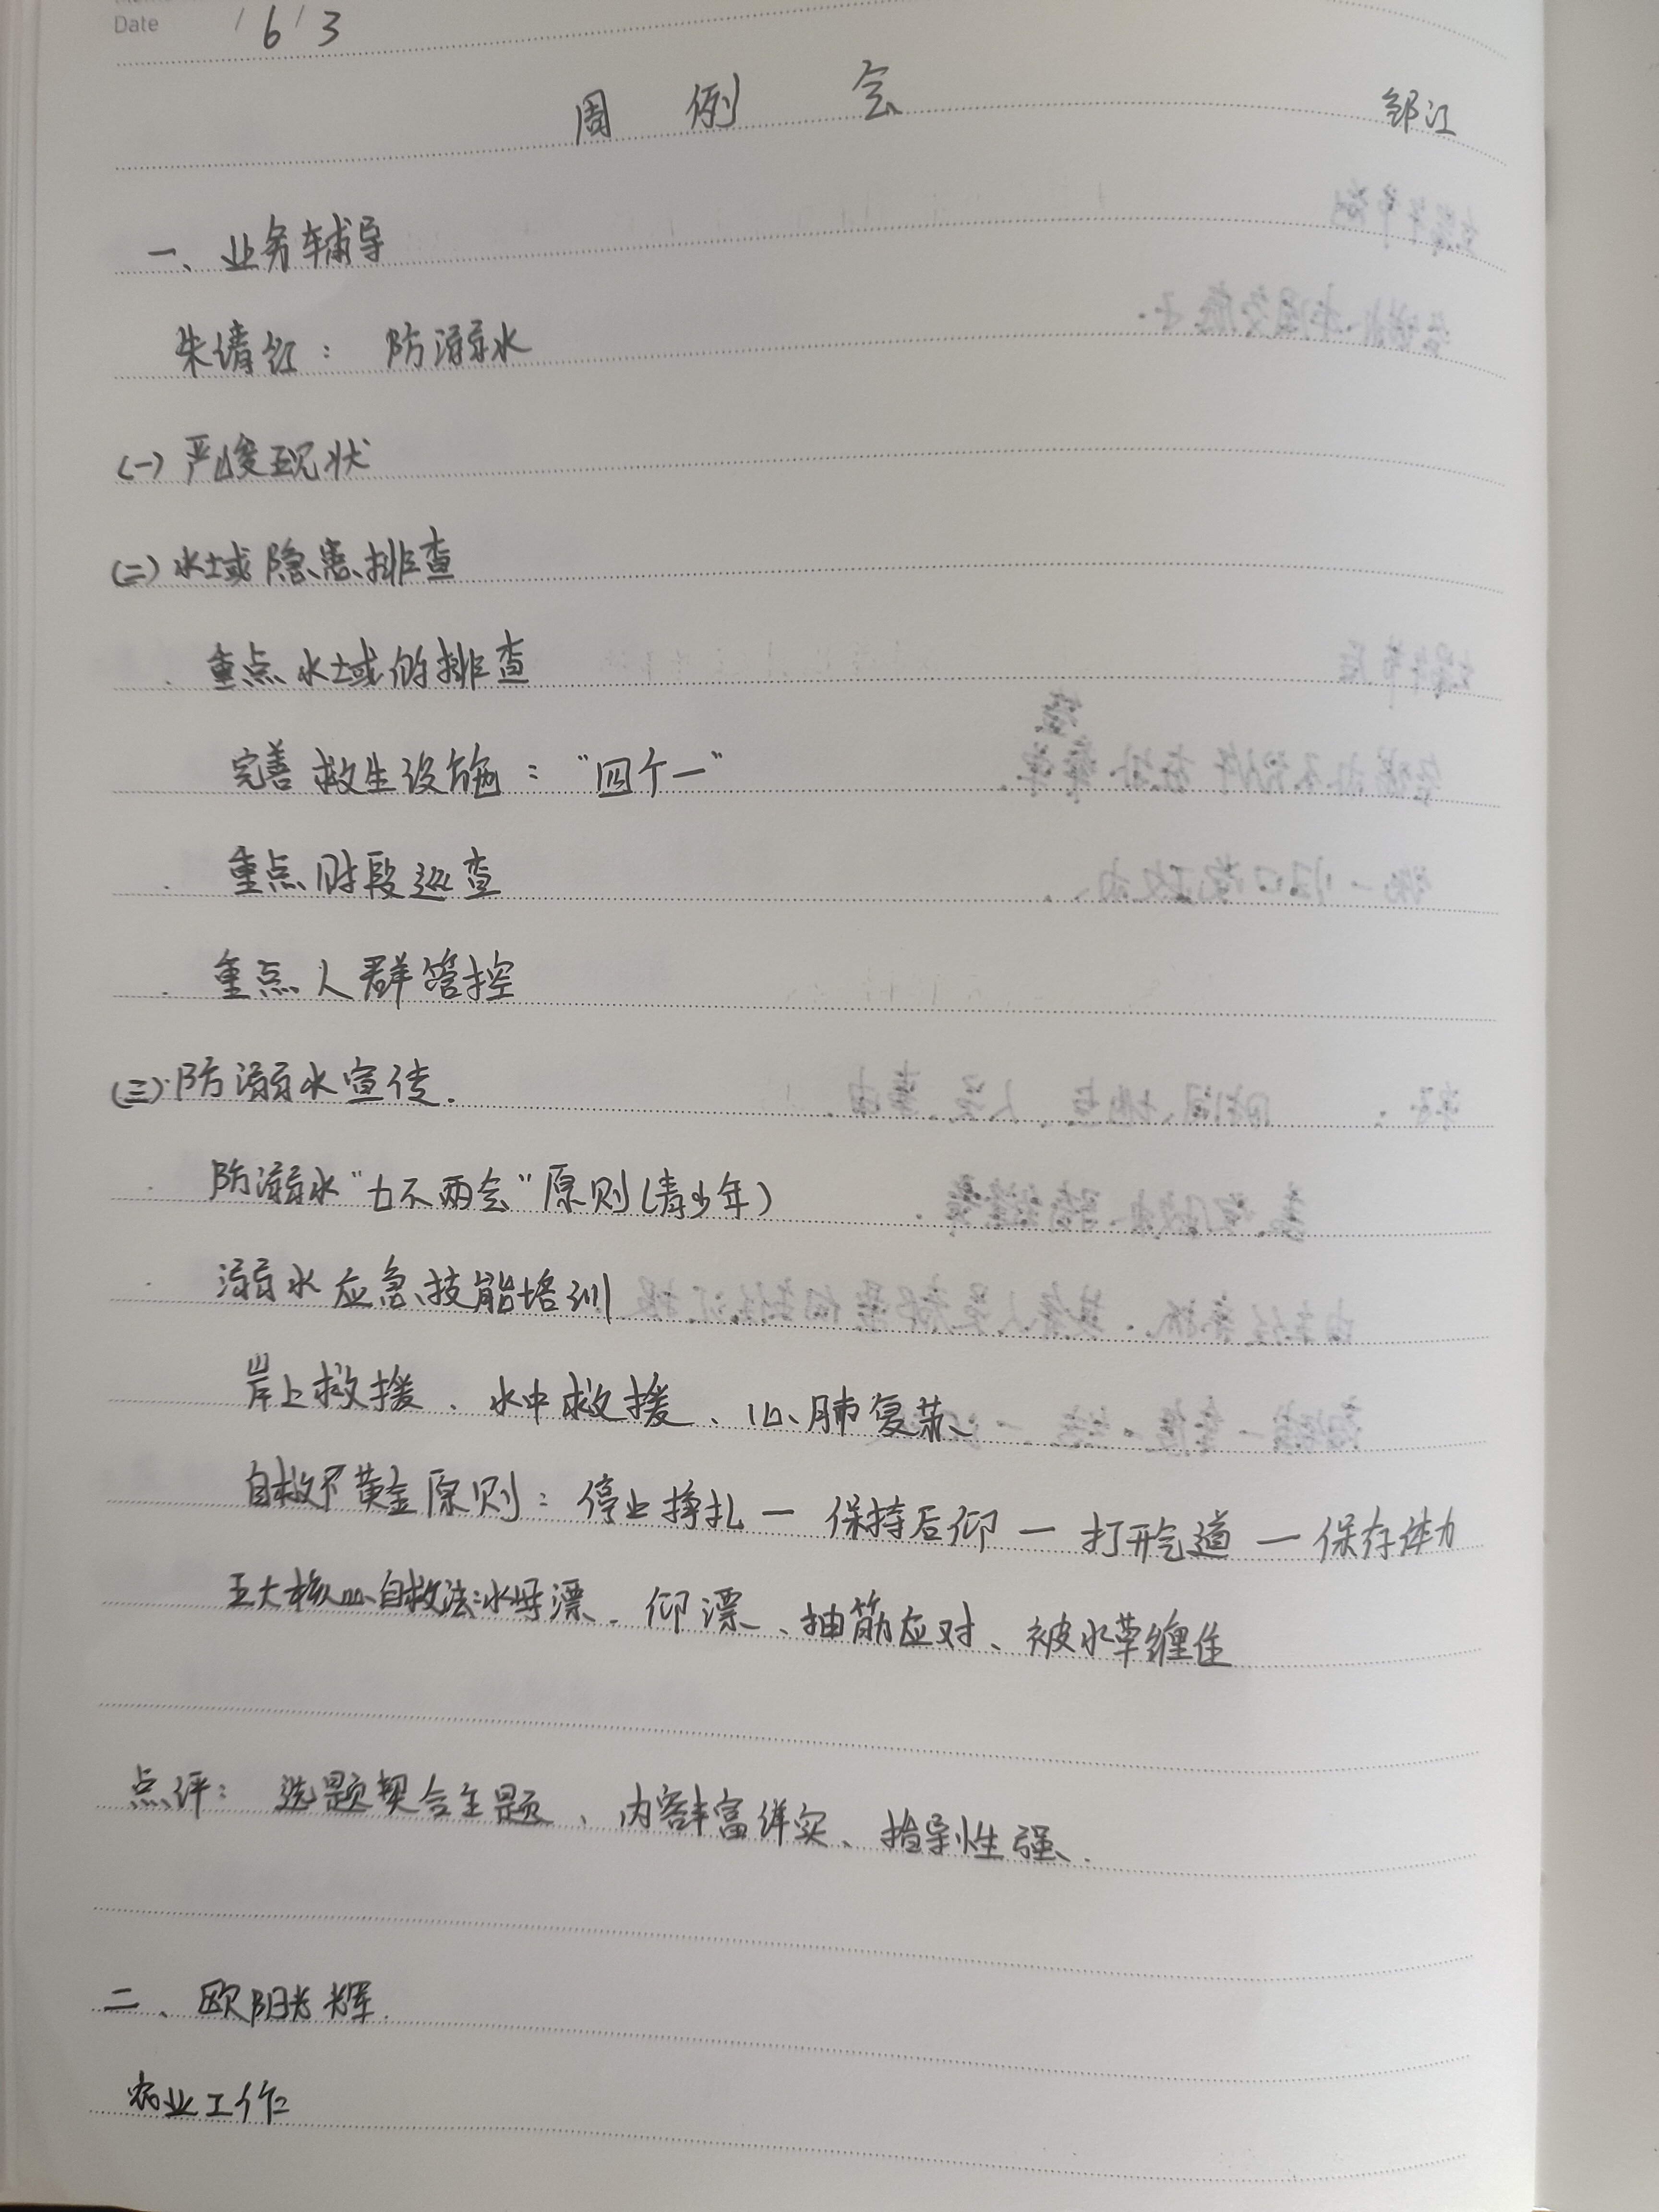 Date / 6 / 3
周 例 会 邹江
一、业务辅导
朱倩红: 防溺水
(一) 严峻现状
(二) 水域隐患排查
. 重点水域的排查
完善救生设施: "四个一"
. 重点时段巡查
. 重点人群管控
(三) 防溺水宣传.
. 防溺水"七不两会"原则(青少年)
. 溺水应急技能培训
岸上救援、水中救援、心肺复苏
自救黄金原则: 停止挣扎一 保持后仰 一 打开气道 一 保存体力
五大核心自救法: 水母漂、仰漂、抽筋应对、被水草缠住
点评: 选题契合主题、内容丰富详实、指导性强.
二、欧阳光辉.
农业工作